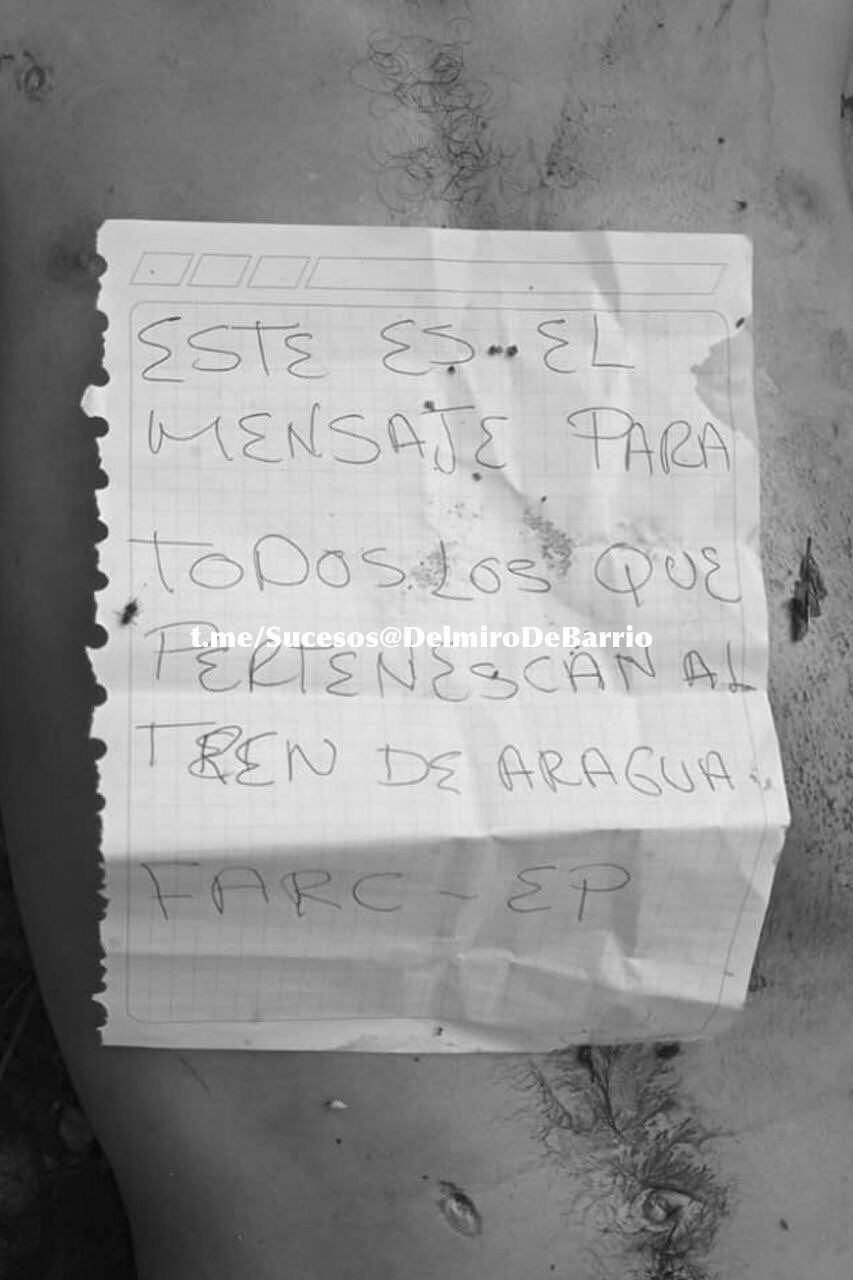 ESTE ES EL
MENSAJE PARA
TODOS LOS QUE
t.me/Sucesos@DelmiroDeBarrio
PERTENESCAN AL
TREN DE ARAGUA.
FARC - EP